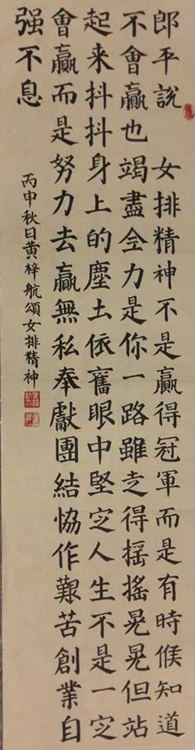 郎平說 女排精神不是贏得冠軍而是有時候知道
不會贏也竭盡全力是你一路雖走得搖搖晃晃但站
起来抖抖身上的塵土依舊眼中堅定人生不是一定
會贏而是努力去贏無私奉獻團結恊作艱苦創業自
强不息
丙申秋日黄梓航頌女排精神